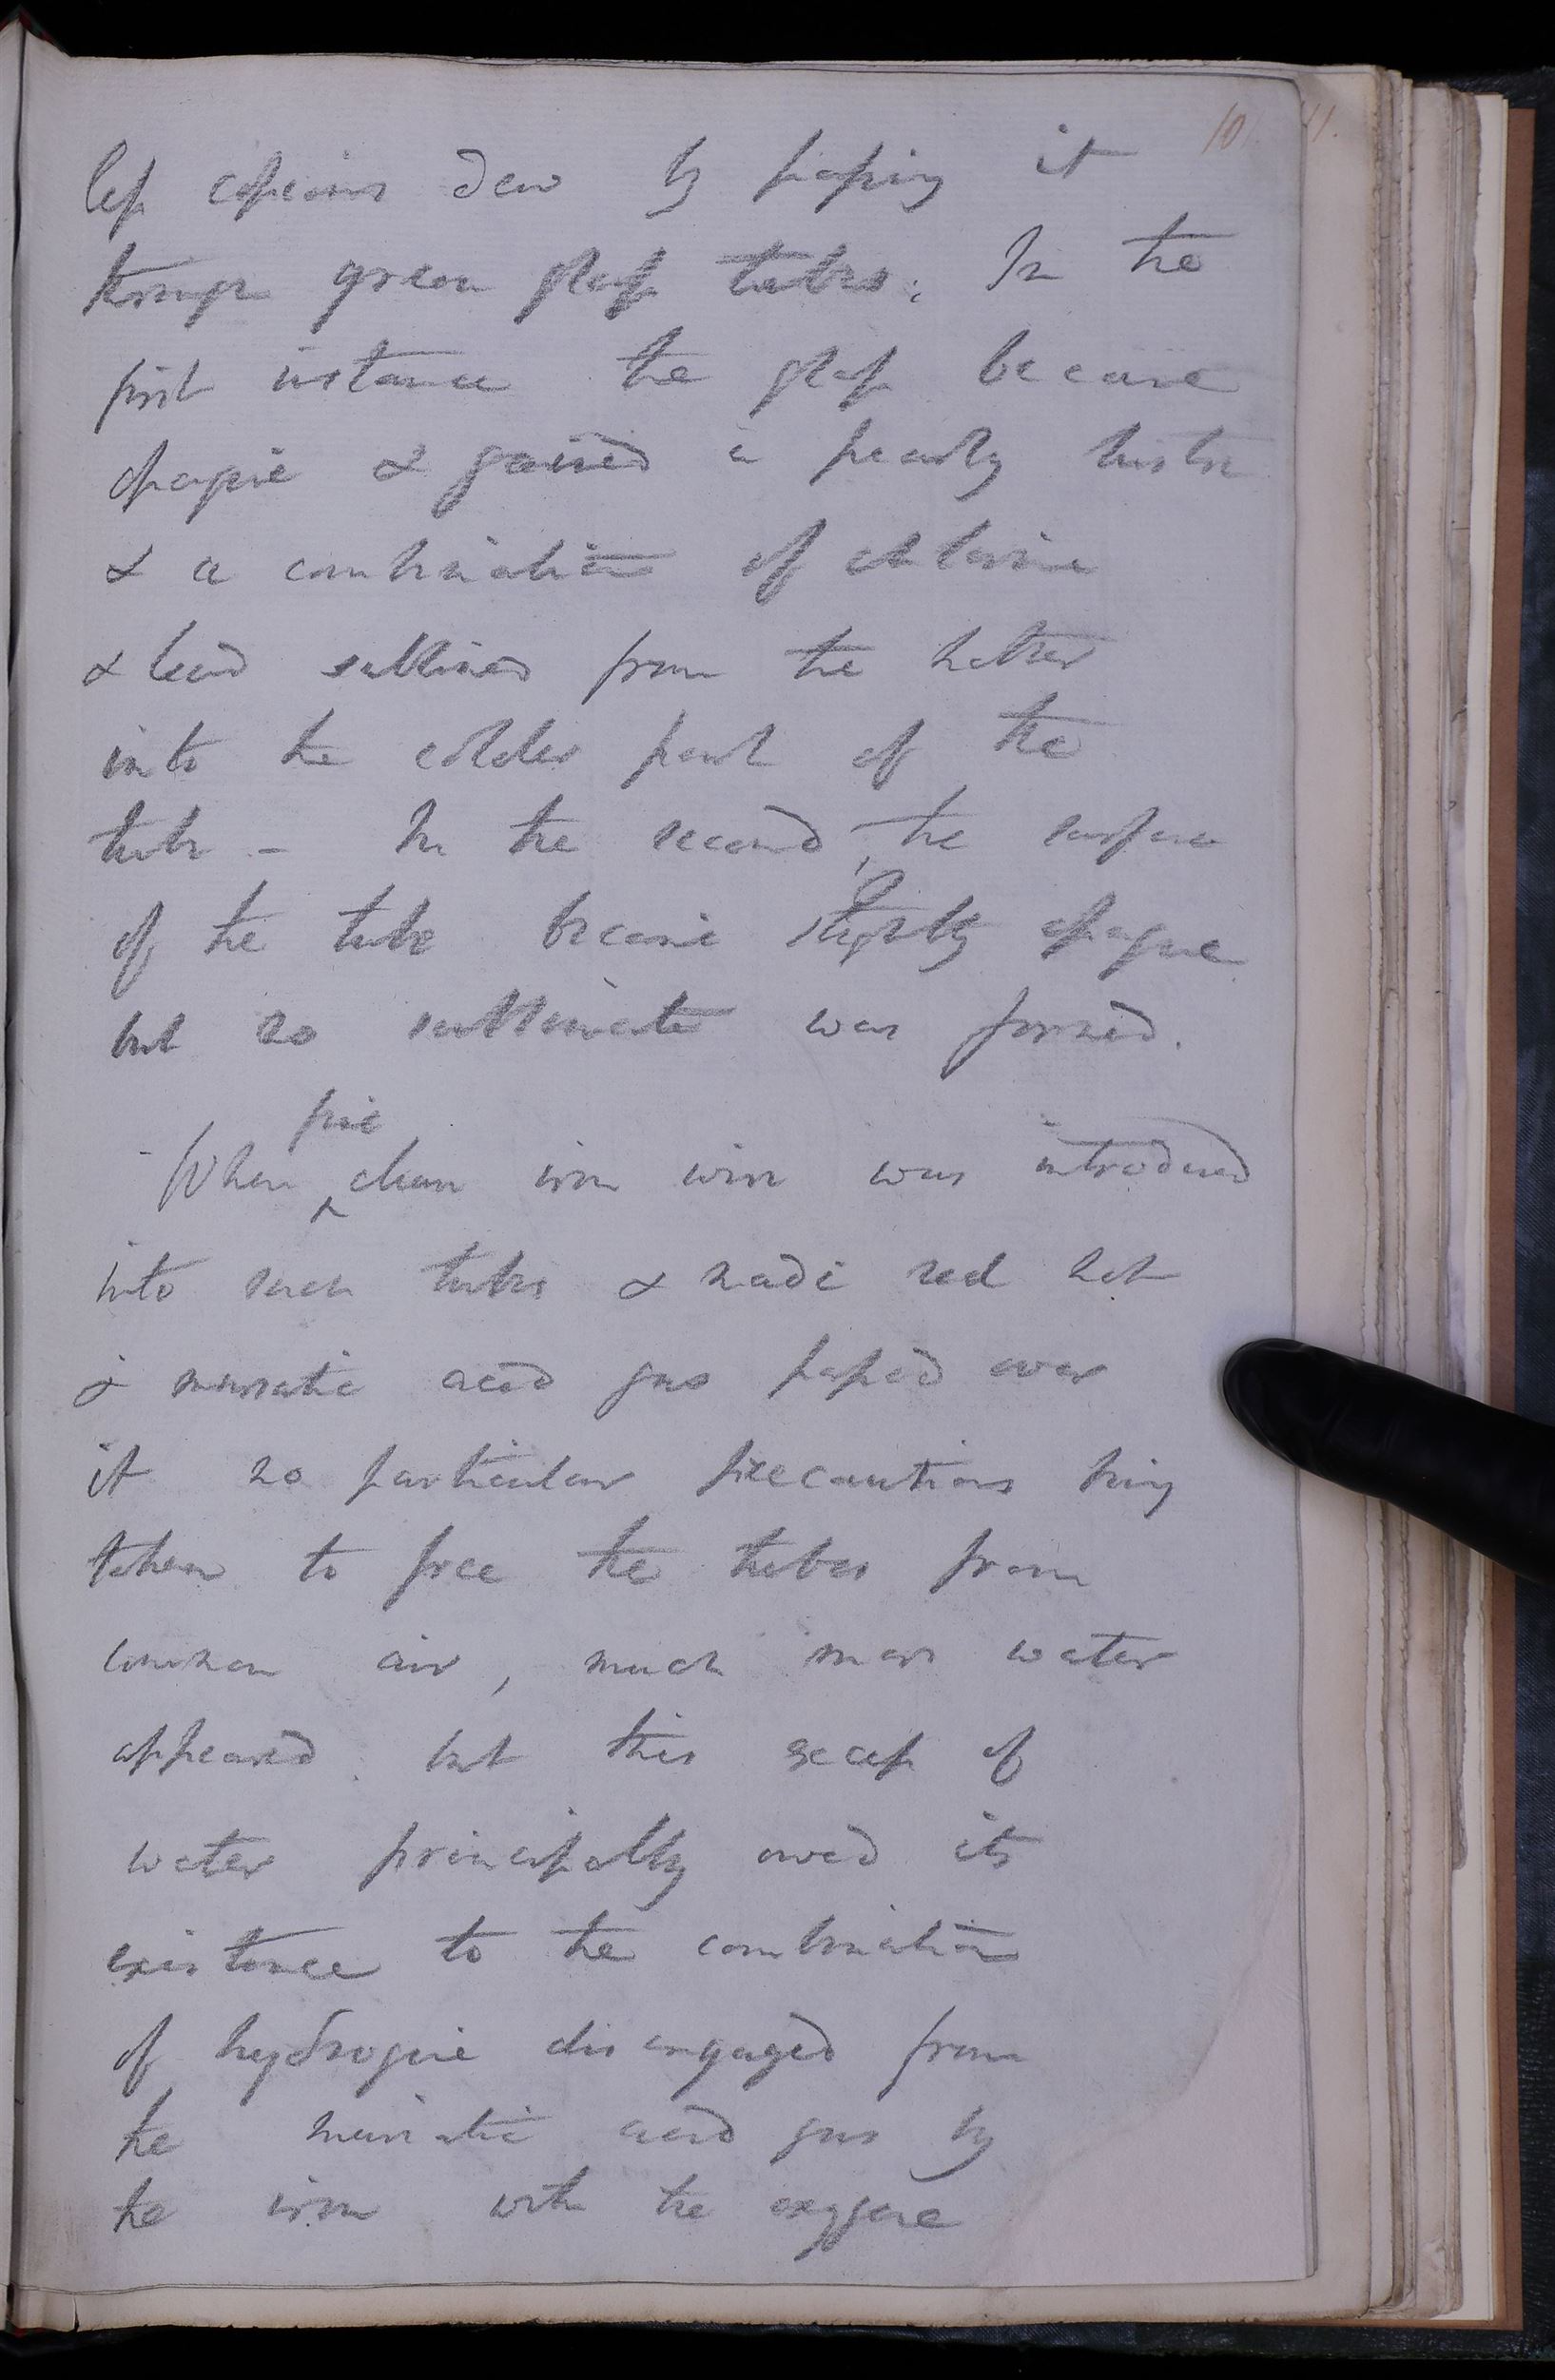 10 41.
less copious dew by passing it
through green glass tubes; In the
first instance the glass became
opaque & gained a pearly lustre
& a combination of chlorine
& lead sublimed from the hotter
into the colder part of the
tube - In the second, the surface
of the tube became slightly opaque
but no sublimate was formed.
fine
When ^ clean iron wire was introduced
into such tubes & made red hot
& muriatic acid gas passed over
it no particular precautions being
taken to free the tubes from
common air, much more water
appeared. but this excess of
water principally owed its
existence to the combination
of hydrogene disengaged from
the muriatic acid gas by
the iron with the oxygene